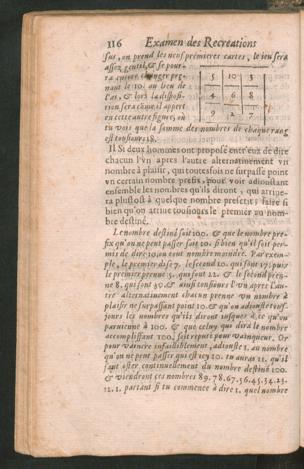 116 Examen des Recreations
sus, on prend les neuf premieres cartes, le ieu sera
assez gentil, & se pour-
ra encore changer pre-
nant le 10. au lieu de
l'as, & lors la disposi-
tion sera cõme il appert
en cette autre figure, où
5 10 3
4 6 8
9 2 7
tu vois que la somme des nombres de chaque rang
est tousiours 18.
Il Si deux hommes ont proposé entr'eux de dire
chacun l'vn apres l'autre alternatiuement vn
nombre à plaisir, qui toutesfois ne surpasse point
vn certain nombre prefix, pour voir adioustant
ensemble les nombres qu'ils diront, qui arriue-
ra plustost à quelque nombre prescrit; faire si
bien qu'on arriue tousiours le premier au nom-
bre destiné.
Le nombre destiné soit 100. & que le nombre pre-
fix qu'on ne peut passer soit 10. si bien qu'il soit per-
mis de dire 10, ou tout nombre moindre. Par exem-
ple, le premier dise 7. le second 10. qui font 17; puis
le premier prenne 5. qui font 22. & le second pren-
ne 8. qui font 30 & ainsi tousiours l'vn apres l'au-
tre alternatiuement chacun prenne vn nombre à
plaisir ne surpassant point 10. & qu'on adiouste tous-
iours les nombres qu'ils diront iusques à ce qu'on
paruienne à 100. & que celuy qui dira le nombre
accomplissant 100, soit reputé pour vainqueur. Or
pour vaincre infailliblement, adiouste 1. au nombre
qu'on ne peut passer qui est icy 10. tu auras 11. qu'il
faut oster continuellement du nombre destiné 100.
& viendront ces nombres 89. 78. 67. 56. 45. 34. 23.
12. 1. partant si tu commence à dire 1. quel nombre